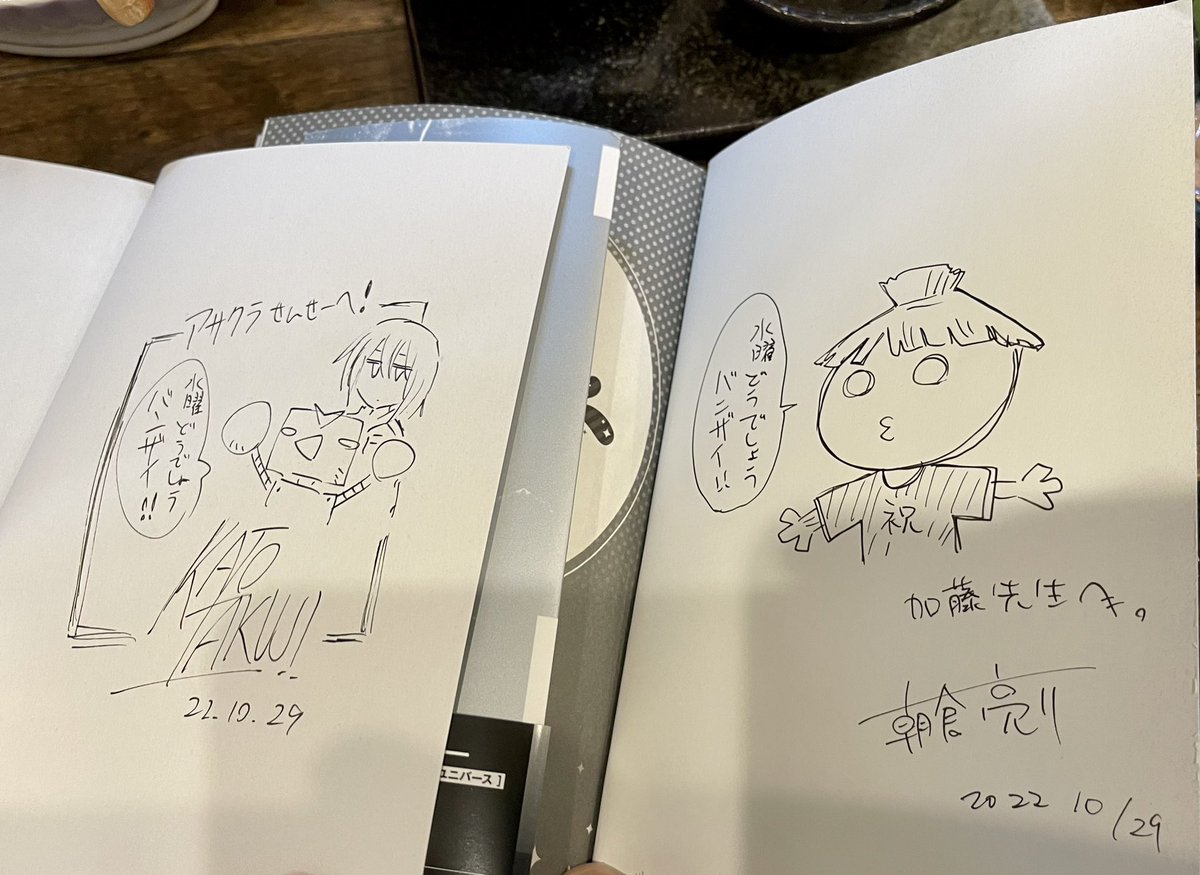 アサクラせんせーへ!
水曜どうでしょう
バンザイ!!
KATO
TAKUJI
22.10.29
ユニバース]
水曜どうでしょう
バンザイ!!
祝
加藤先生へ。
朝倉亮川
2022 10/29